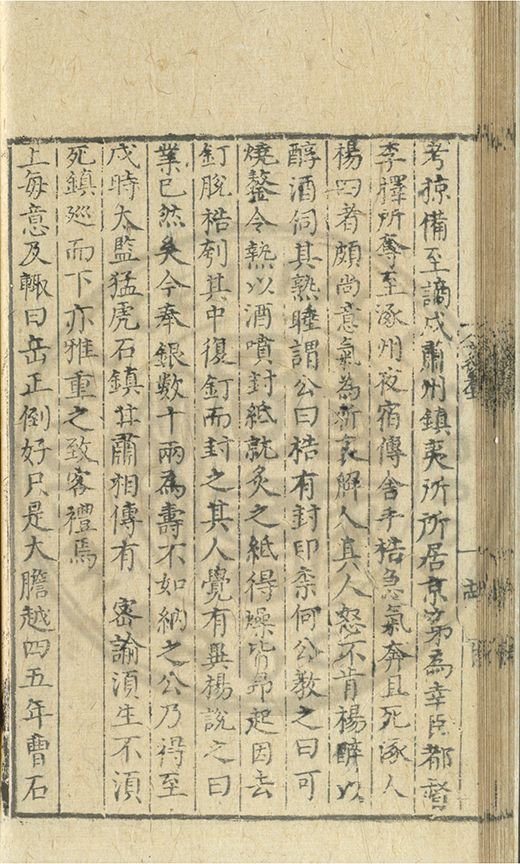 考掠備至謫戍肅州鎮夷所所居京第為幸臣都督
李鐸所奪至涿州夜宿傳舍手梏急氣奔且死涿人
楊四者頗尚意氣為祈哀解人其人怒不肯楊醉以
醇酒伺其熟睡謂公曰梏有封印柰何公教之曰可
燒鏊令熱以酒噴封紙就炙之紙得燥皆昻起因去
釘脫梏刳其中復釘而封之其人覺有異楊說之曰
業已然矣今奉銀數十兩為壽不如納之公乃得至
戍時太監猛虎石鎮甘肅相傳有 密諭湏生不湏
死鎮廵而下亦雅重之致客禮焉
上每意及輙曰岳正倒好只是大膽越四五年曹石